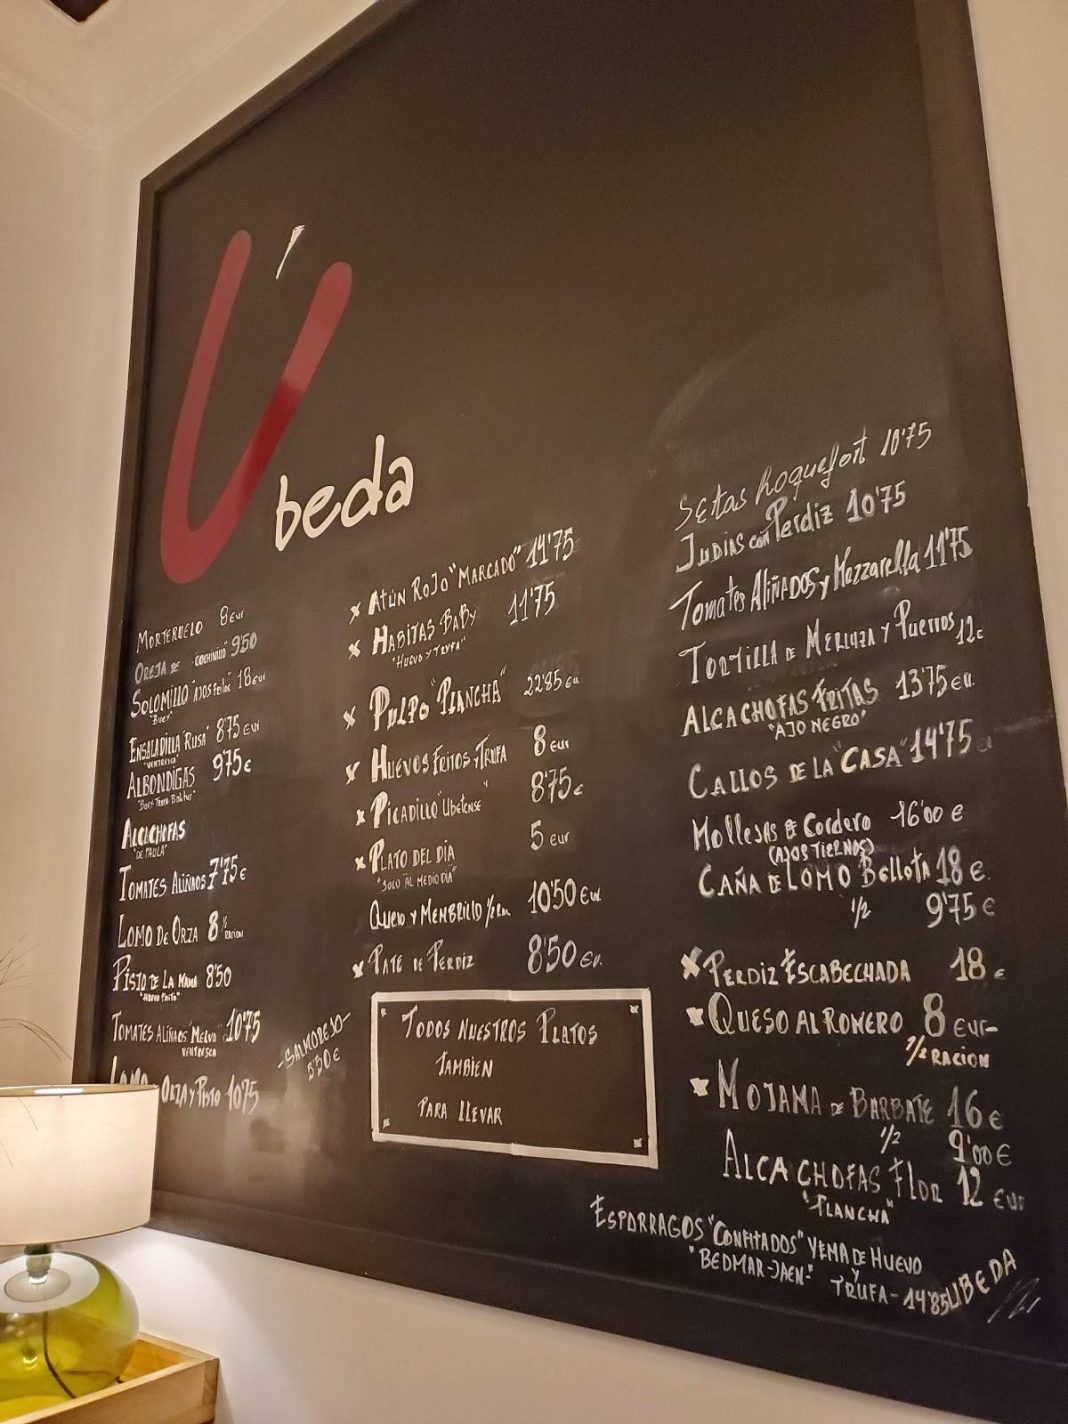 Úbeda
MORTERUELO 8 eur
OREJA DE COCHINILLO 9'50
SOLOMILLO "AJOS Fritos" 18 eur
"Buey"
ENSALADILLA "RUSA" 8'75 eur
"VENTRESCA"
ALBONDIGAS 9'75 €
ALCACHOFAS
"DE PAULA"
TOMATES ALIÑAOS 7'75 €
LOMO DE ORZA 8 ½ RACION
PISTO DE LA MAMA 8'50
"HUEVO FRITO"
TOMATES ALIÑAOS "MELVA" 10'75
VENTRESCA
LOMO ORZA Y PISTO 10'75
-SALMOREJO-
5'50 €
x ATÚN ROJO "MARCADO" 14'75
x HABITAS BABY 11'75
"HUEVO Y TRUFA"
x PULPO "PLANCHA" 22'85 eu
x HUEVOS FRITOS y TRUFA 8 eur
x PICADILLO "Ubetense" 8'75 €
x PLATO DEL DÍA 5 eur
"SOLO AL MEDIO DÍA"
QUESO Y MEMBRILLO 10'50 Eur
x PATÉ DE PERDIZ 8'50 Eu.
TODOS NUESTROS PLATOS
TAMBIEN
PARA LLEVAR
SEtas Roquefort 10'75
JUDIAS con Perdiz 10'75
Tomates ALIÑADOS y Mozzarella 11'75
TORTILLA DE MERLUZA Y PUERROS 12 €
ALCACHOFAS FRITAS 13'75 eu
"AJO NEGRO"
CALLOS DE LA "CASA" 14'75
Mollejas DE Cordero 16'00 €
(AJOS TIERNOS)
CAÑA DE LOMO Bellota 18 €
½ 9'75 €
x PERDIZ ESCABECHADA 18 €
x QUESO AL ROMERO 8 EUR-
½ RACION
x MOJAMA DE BARBATE 16 €
½ 9'00 €
ALCACHOFAS FLOR 12 eur
"PLANCHA"
ESPARRAGOS "CONFITADOS" YEMA DE HUEVO
"BEDMAR-JAEN-" Y TRUFA - 14'85
UBEDA